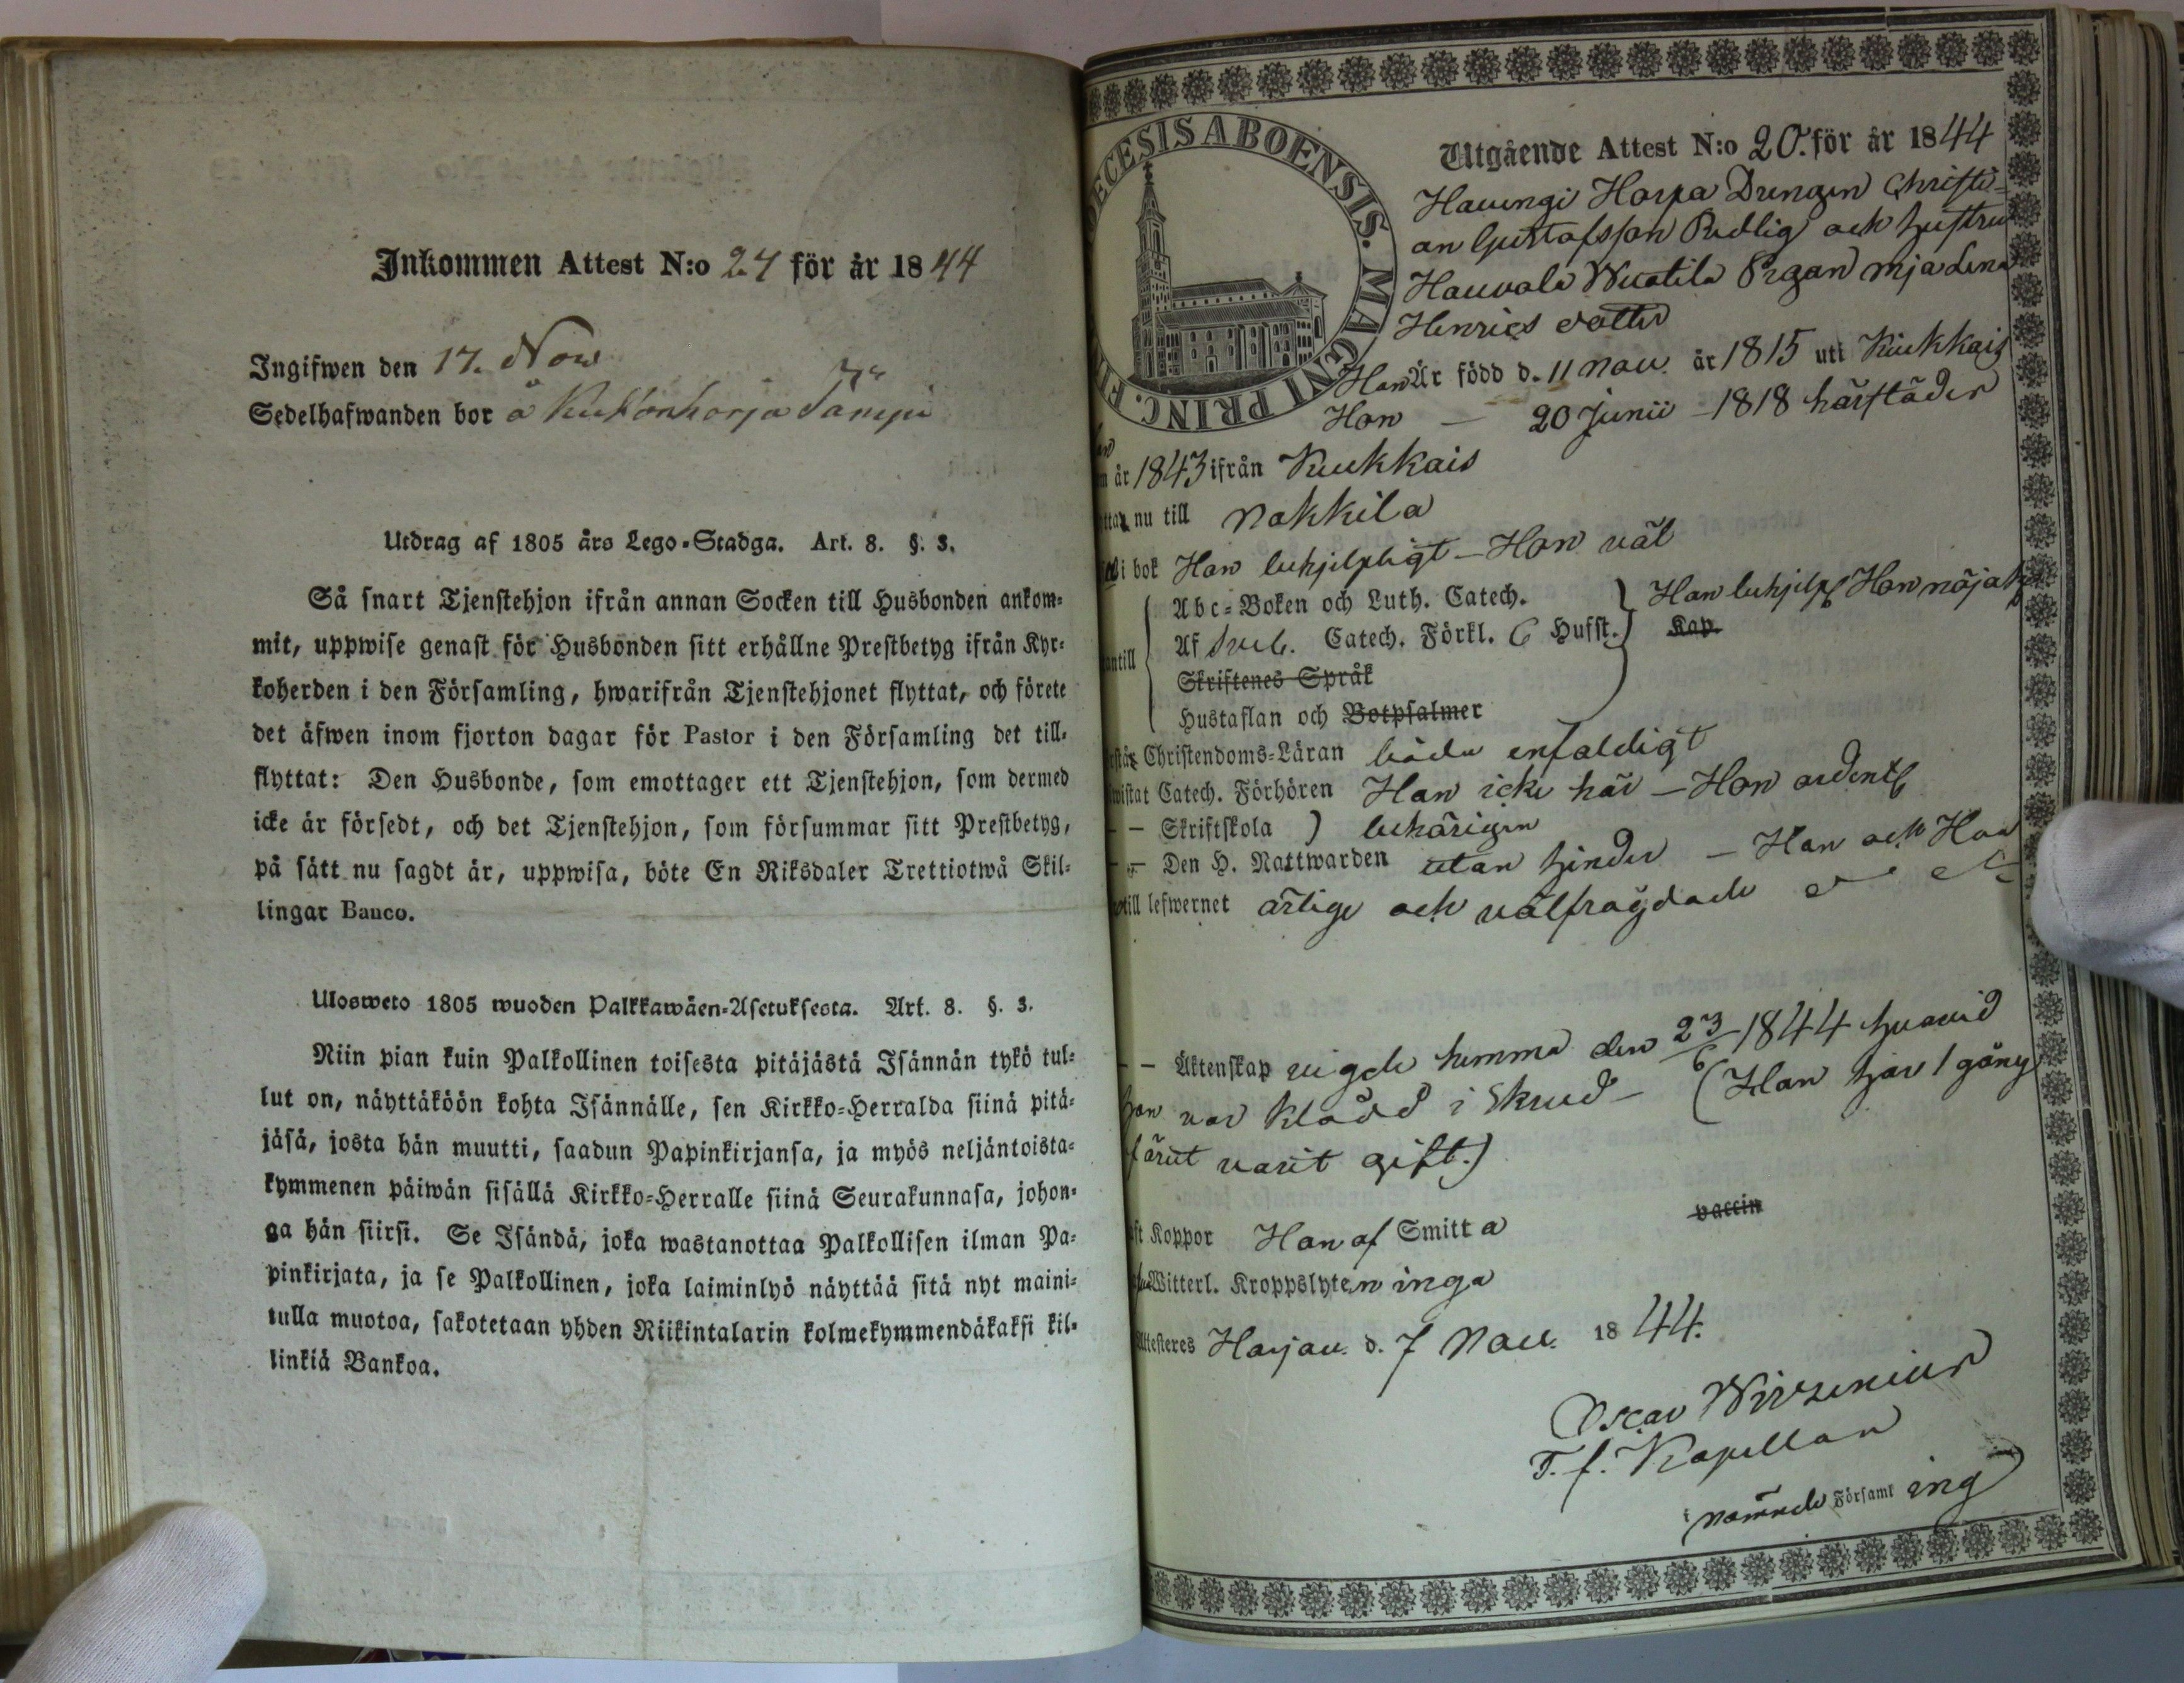 Inkommen Attest N:o 24 för år 1844
Ingifwen den 17. Nov
Sedelhafwanden bor å
Utdrag af 1805 års Lego-Stadga. Art. 8. §. 3.
Så snart Tjenstehjon ifrån annan Socken till Husbonden ankom-
mit, uppwise genast för Husbonden sitt erhållne Prestbetyg ifrån Kyr-
koherden i den Församling, hwarifrån Tjenstehjonet flyttat, och förete
det äfwen inom fjorton dagar för Pastor i den Församling det till-
flyttat: Den Husbonde, som emottager ett Tjenstehjon, som dermed
icke är försedt, och det Tjenstehjon, som försummar sitt Prestbetyg,
på sätt nu sagdt är, uppwisa, böte En Riksdaler Trettiotwå Skil-
lingar Banco.
Ulosweto 1805 wuoden Palkkawäen-Asetuksesta. Art. 8. §. 3.
Niin pian kuin Palkollinen toisesta pitäjästä Isännän tykö tul-
lut on, näyttäköön kohta Isännälle, sen Kirkko-Herralda siinä pitä-
jäsä, josta hän muutti, saadun Papinkirjansa, ja myös neljäntoista-
kymmenen päiwän sisällä Kirkko-Herralle siinä Seurakunnasa, johon-
ga hän siirsi. Se Isändä, joka wastanottaa Palkollisen ilman Pa-
pinkirjata, ja se Palkollinen, joka laiminlyö näyttää sitä nyt maini-
tulla muotoa, sakotetaan yhden Riikintalarin kolmekymmendäkaksi kil-
linkiä Bankoa.
ECESIS ABOENSIS. MAGNI PRINC. FI
Utgående Attest N:o 20. för år 1844
Hauvngi Harpa Drengen Christi-
an Gustafsson Rudlig och hustru
Hauvola Wuotila Pigan Mja Lena
Henrics dotter
Han Är född d. 11 Nov. år 1815 uti Kiukkais
Hon — 20 Junii — 1818 härstädes
år 1843 ifrån Kiukkais
nu till Nakkila
i bok Han behjelpligt — Hon väl
Abc-Boken och Luth. Catech. Han behjelpl Hon nöjakt
Af Sveb. Catech. Förkl. 6 Hufst. Kap.
antill
Skriftenes Språk
Hustaflan och Botpsalmer
Christendoms-Läran båda enfaldigt
wistat Catech. Förhören Han icke här — Hon ordentl
— — Skriftskola ) behörigen
— — Den H. Nattwarden utan hinder — Han och Hon
till lefwernet ärlige och välfrägdade
— — Äktenskap vigde hemma den 23/6 1844 hvarvid
hon var klädd i Skrud — (Han har 1 gång
förut varit gift.)
Koppor Han af Smitta vaccin
Witterl. Kroppslyten inga
Attesteres Harjav. d. 7 Nov. 1844.
Oscar Wirzenius
T. f. Kapellan
i nämnde Församling